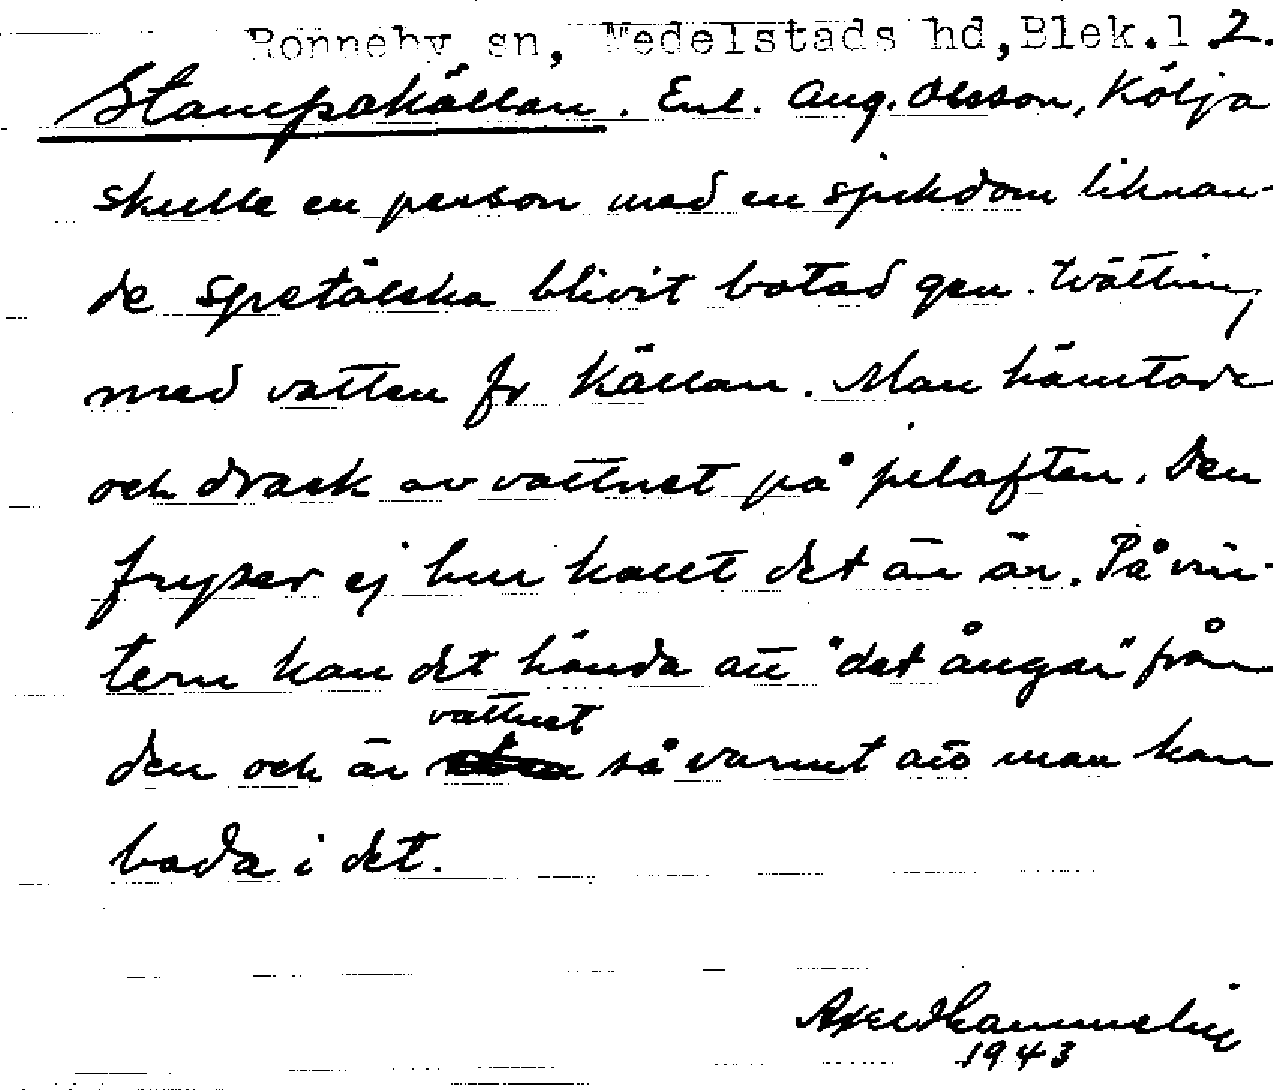 Ronneby sn, Medelstads hd, Blek.l 2.
Stampakällan. Enl. Aug. Olsson, Kölja
skulle en person med en sjukdom liknan-
de spetälska blivit botad gen. tvättning
med vatten fr källan. Man hämtade
och drack av vattnet på julaften. Den
fryser ej hur kallt det än är. På vin-
tern kan det hända att "det ångar" från
vattnet
den och är så varmt att man kan
bada i det.
1943